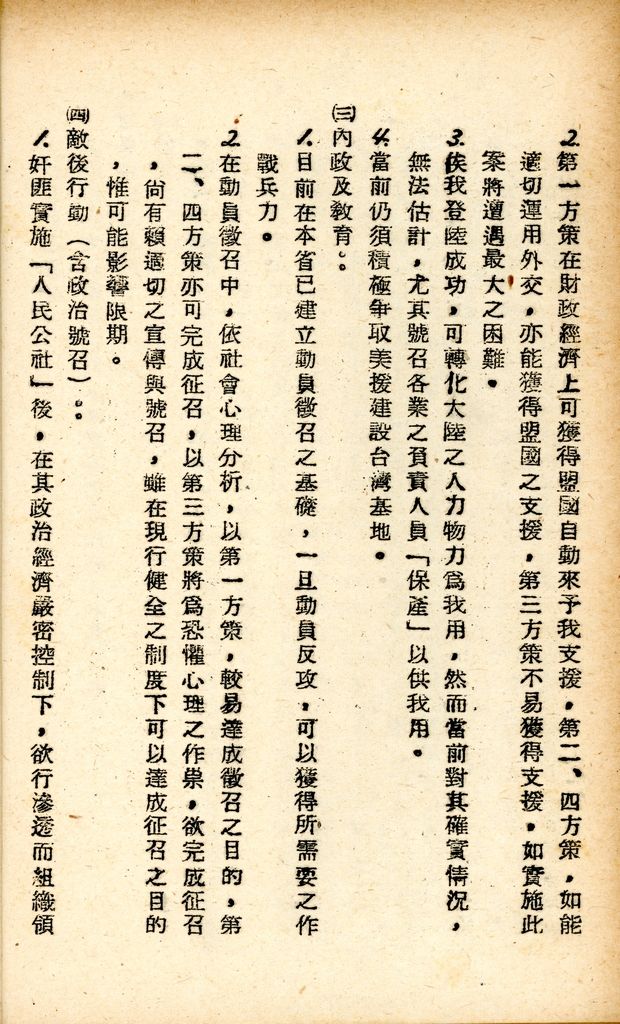 2.第一方策在財政經濟上可獲得盟國自動來予我支援，第二、四方策，如能
適切運用外交，亦能獲得盟國之支援，第三方策不易獲得支援，如實施此
案將遭遇最大之困難。
3.俟我登陸成功，可轉化大陸之人力物力爲我用，然而當前對其確實情況，
無法估計，尤其號召各業之負責人員「保產」以供我用。
4.當前仍須積極爭取美援建設台灣基地。
㈢內政及教育：
1.目前在本省已建立動員徵召之基礎，一旦動員反攻，可以獲得所需要之作
戰兵力。
2.在動員徵召中，依社會心理分析，以第一方策，較易達成徵召之目的，第
二、四方策亦可完成征召，以第三方策將爲恐懼心理之作祟，欲完成征召
，尙有賴適切之宣傳與號召，雖在現行健全之制度下可以達成征召之目的
，惟可能影響限期。
㈣敵後行動（含政治號召）：
1.奸匪實施「人民公社」後，在其政治經濟嚴密控制下，欲行滲透而組織領